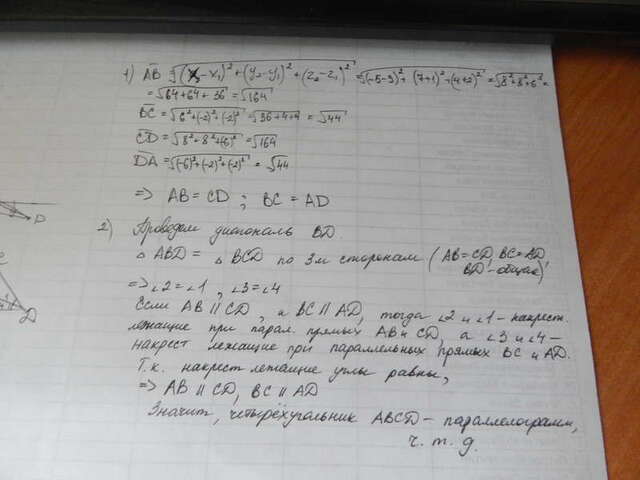 1) AB = √(x₂-x₁)²+(y₂-y₁)²+(z₂-z₁)² = √(-5-3)²+(7+1)²+(4+2)² = √8²+8²+6² =
= √64+64+36 = √164
BC = √6²+(-2)²+(-2)² = √36+4+4 = √44
CD = √8²+8²+(6)² = √164
DA = √(-6)²+(-2)²+(-2)² = √44
=> AB = CD ; BC = AD
2) Проведем диагональ BD.
△ ABD = △ BCD по 3м сторонам (AB=CD, BC=AD,
BD - общая)
=> ∠2=∠1, ∠3=∠4
Если AB || CD, и BC || AD, тогда ∠2 и ∠1 - накрест.
лежащие при парал. прямых AB и CD, а ∠3 и ∠4 -
накрест лежащие при параллельных прямых BC и AD.
Т.к. накрест лежащие углы равны,
=> AB || CD, BC || AD
Значит, четырёхугольник ABCD - параллелограмм,
ч. т. д.
D
D